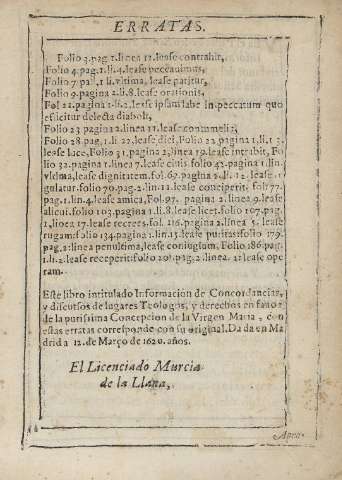 ERRATAS.
Folio 3.pag.1.linea 12.lease contrahit,
Folio 4.pag.1.li.4.lease peccauimus,
Folio 7.pag.1.li.vltima, lease patitur,
Folio 9.pagina 2.li.8.lease orationis,
Fol 22.pagina 1.li.2.lease ipsam labe in peccatum quo
efficitur delecta diaboli,
Folio 23 pagina 2.linea 11.lease contumeliæ,
Folio 28.pag.1.li.22.lease dici, Folio 22.pagina 1.li.13.
lease luce, Folio 31.pagina 2, linea 19.lease intrabit, Fo
lio 32.pagina 1.linea 7.lease ciuis.folio 42.pagina 1.lin.
vltima, lease dignitatem.fol.67.pagina 2.li.12.lease 
gulatur.folio 70.pag.2.lin.12.lease conciperit, fol.77.
pag.1.lin.4.lease amica, Fol.97. pagina 2.linea 9.lease
alicui.folio 103.pagina 1.li.8.lease licet.folio 107.pag.
1,linea 17.lease fol.116.pagina 2.linea 5. lease
rugam.folio 134.pagina 1.lin.13.lease puritas:folio 179.
pag.2:linea penultima,lease coniugium. Folio 186.pag.
1.li.2.lease receperit:folio 201.pag.2.linea.21:lease ope
ram.
Este libro intitulado Informacion de Concordancias,
y discursos de lugares Teologos, y derechos en fauor
de la purissima Concepcion de la Virgen Maria, con
estas erratas corresponde con su original. Dada en Ma
drid a 12.de Março de 1620.años.
El Licenciado Murcia
de la Llana,
Apro-